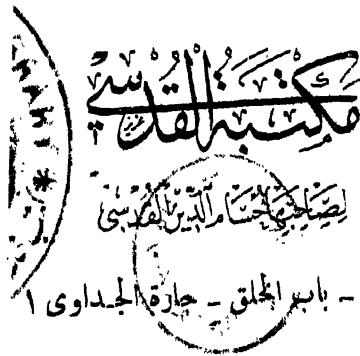 مكتبة القدسي
لصاحبها حسام الدين القدسي
- باب الخلق - حارة الجداوى ١